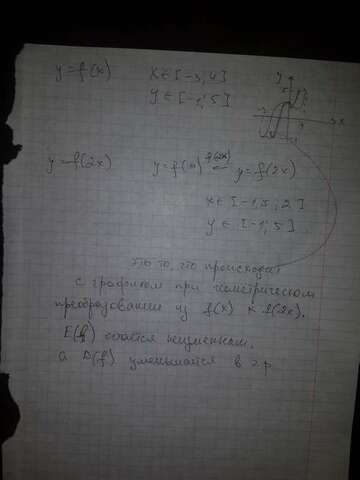 y=f(x) x∈[-3;4]
y∈[-1;5]
y=f(2x) y=f(x) f(2x) ← y=f(2x)
x∈[-1,5;2]
y∈[-1;5]
это то, что происходит
с графиком при геометрическом
преобразовании из f(x) к f(2x).
E(f) остаётся неизменным,
а D(f) уменьшается в 2 р.